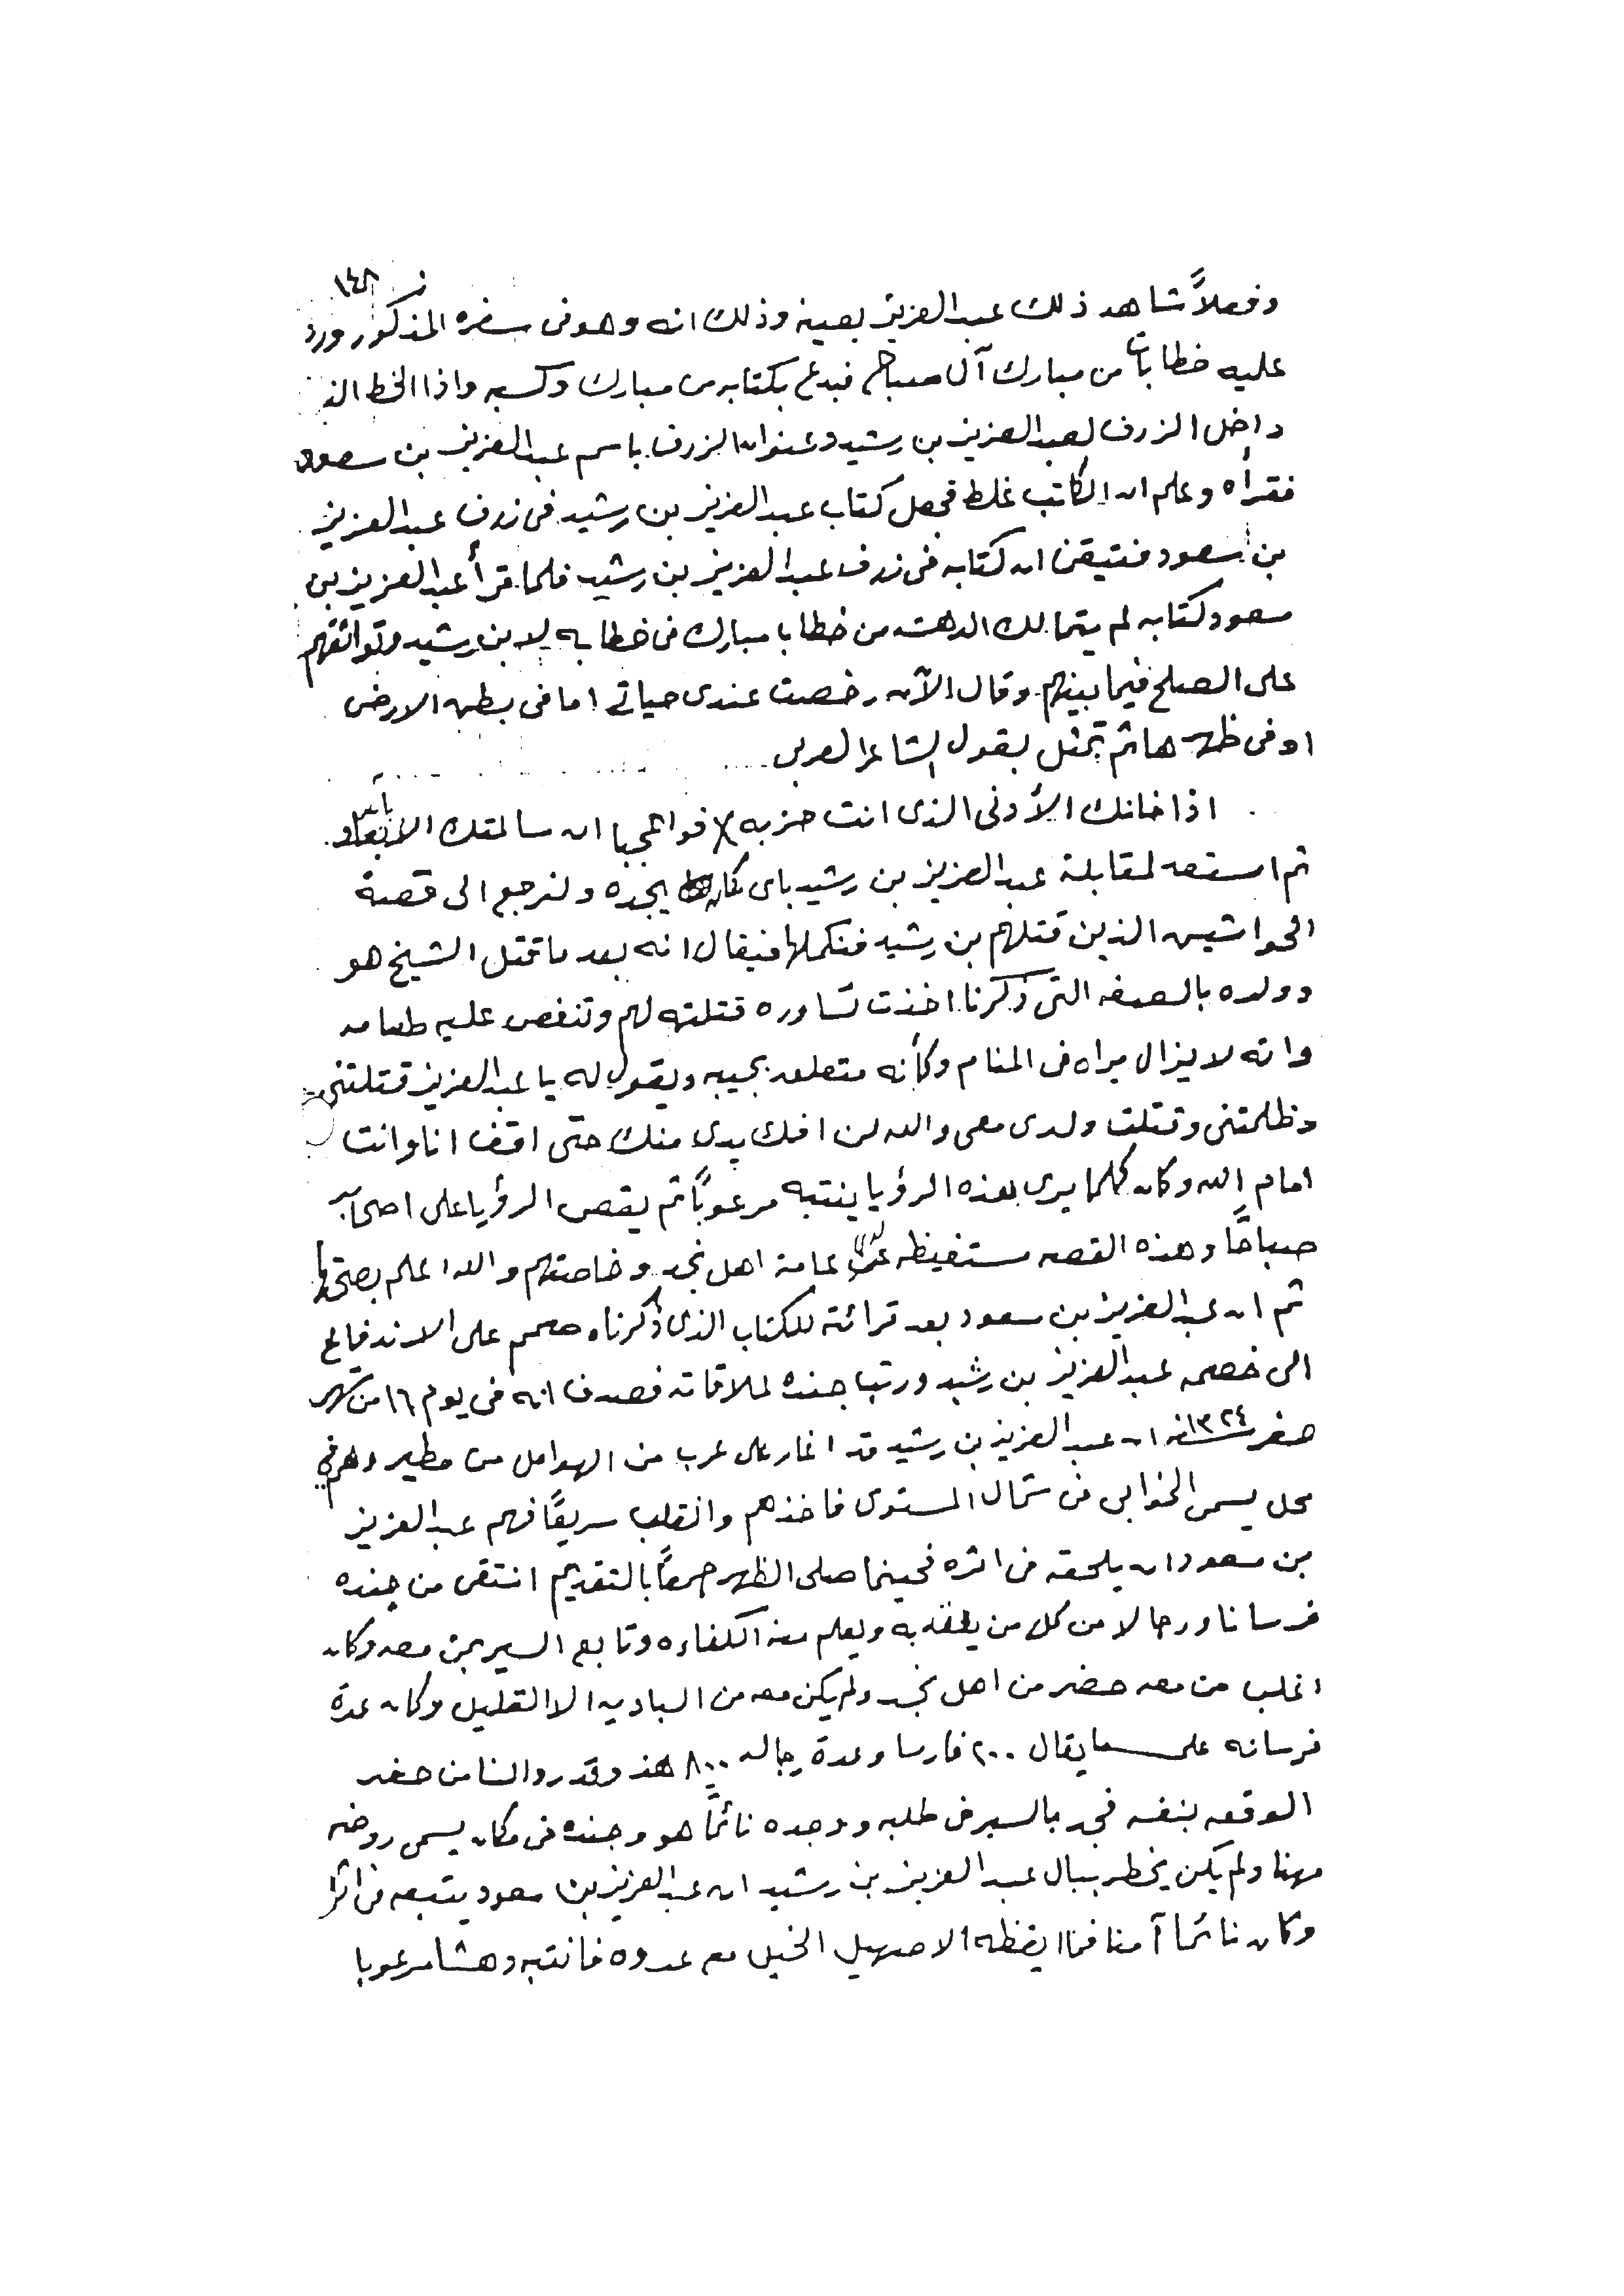 ١٤٨
وفعلاً شاهد ذلك عبد العزيز بعينه وذلك انه وهو فى سفره المذكور ورد
عليه خطابات من مبارك آل صباح فبدئ بكتابه من مبارك وكسبه واذا الخط الذ
داخل الزرف لعبد العزيز بن رشيد وعنوان الزرف باسم عبد العزيز بن سعود
فقرأه وعلم ان الكاتب غلط فجعل كتاب عبد العزيز بن رشيد فى زرف عبد العزيز
بن سعود فتيقن ان كتابه فى زرف عبد العزيز بن رشيد فلما قرأ عبد العزيز بن
سعود كتابه لم يتمالك الدهشه من خطابا مبارك فى خطابه لابن رشيد وتوافقهم
على الصلح فيما بينهم وقال الآن رخصت عندى حياتى اما فى بطن الارض
او فى ظهرها ثم تمثل بقول الشاعر العربى
اذا خانك الأدنى الذى انت حزبه فواعجبا ان سالمتك الاباعد
ثم استعد لمقابلة عبد العزيز بن رشيد باى مكان يجده ولنرجع الى قصة
الحواشيس الذين قتلهم بن رشيد فنكملها فيقال انه بعد ما قتل الشيخ هو
وولده بالصفه التى ذكرنا اخذت تساوره قتلته لهم وتنغص عليه طعامه
وانه لا يزال يراه فى المنام وكأنه متعلق بجيبه ويقول له يا عبد العزيز قتلتنى
وظلمتنى وقتلت ولدى معى والله لن افك يدى منك حتى اقف انا وانت
امام الله وكان كلما يرى هذه الرؤيا ينتبه مرعوباً ثم يقص الرؤيا على اصحابه
صباحاً وهذه القصه مستفيظه عند عامة اهل نجد وخاصتهم والله اعلم بصحتها
ثم ان عبد العزيز بن سعود بعد قرائته للكتاب الذى ذكرناه صمم على الاندفاع
الى خصمه عبد العزيز بن رشيد ورتب جنده لملاقاته فصدف انه فى يوم ١٦ من شهر
صفر سنة ١٣٢٤ ان عبد العزيز بن رشيد قد اغار على عرب من الهوامل من مطير وهم فى
محل يسمى الخوابى فى شمال المستوى فاخذهم وانقلب سريعاً فهم عبد العزيز
بن سعود ان يلحقه فى اثره فحينما صلى الظهر جمعاً بالتقديم انتقى من جنده
فرسانا ورجالا من كل من يعتقد به ويعلم منه الكفاءه وتابع السير بمن معه وكان
اغلب من معه حضر من اهل نجد ولم يكن معه من الباديه الا القليل وكان عدة
فرسانه على ما يقال ٢٠٠ فارسا وعدة رجاله ٨٠٠ هذ وقد روالنا من حضر
الوقعه بنفسه فجد بالسير فى طلبه ووجده نائماً هو وجنده فى مكان يسمى روضه
مهنا ولم يكن يخطر ببال عبد العزيز بن رشيد ان عبد العزيز بن سعود يتبعه فى اثر
وكان نائما آمنا فما ايقظه الا صهيل الخيل مع عدوه فانتبه دهشا مرعوبا